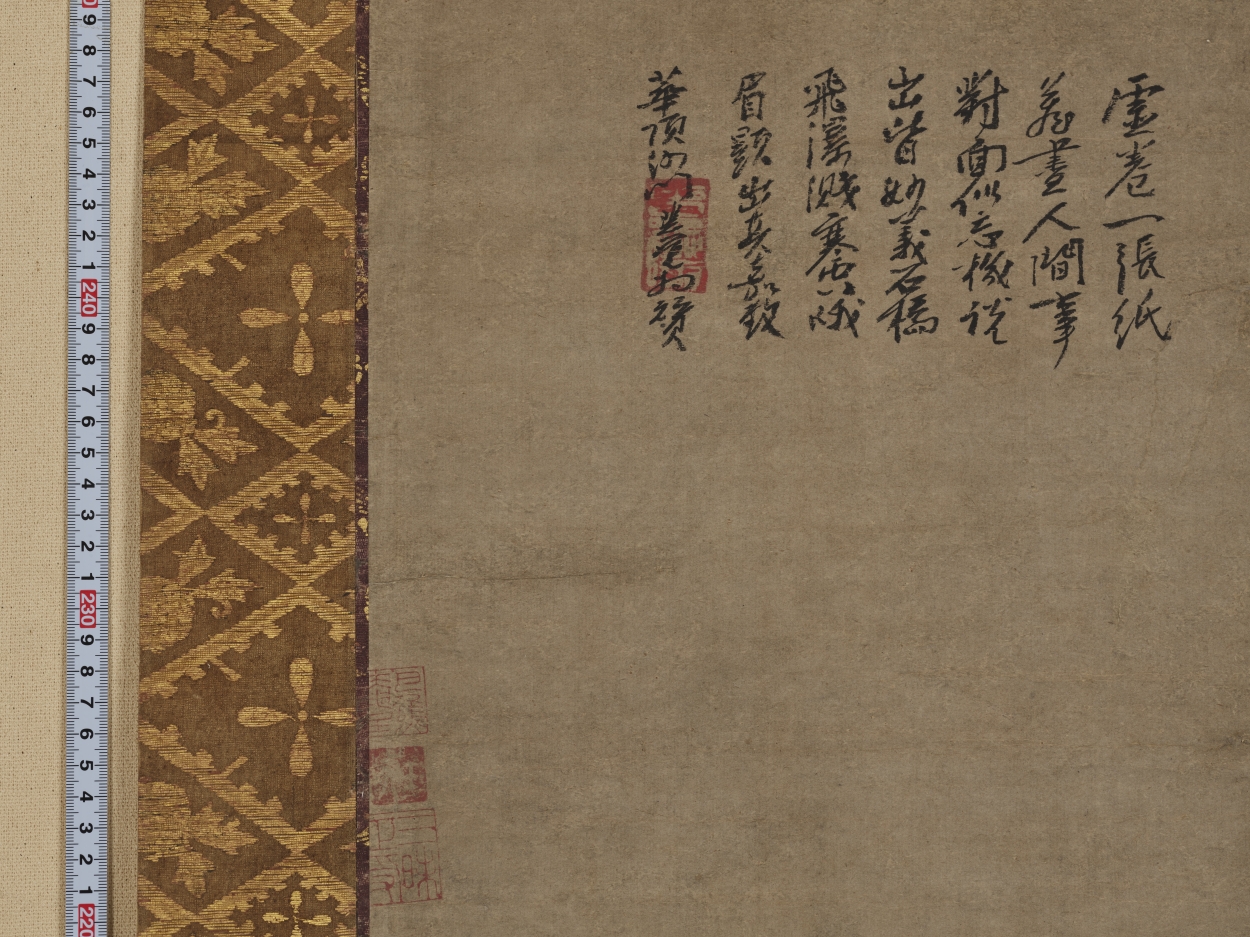 虛卷一張紙
盡人間事
對面似忘機說
出皆妙義石橋
飛瀑濺寒峨
眉顯出真嘉致
華頂沙門贊
9
8
7
6
5
4
3
2
1
240
9
8
7
6
5
4
3
2
1
230
9
8
7
6
5
4
3
2
1
220